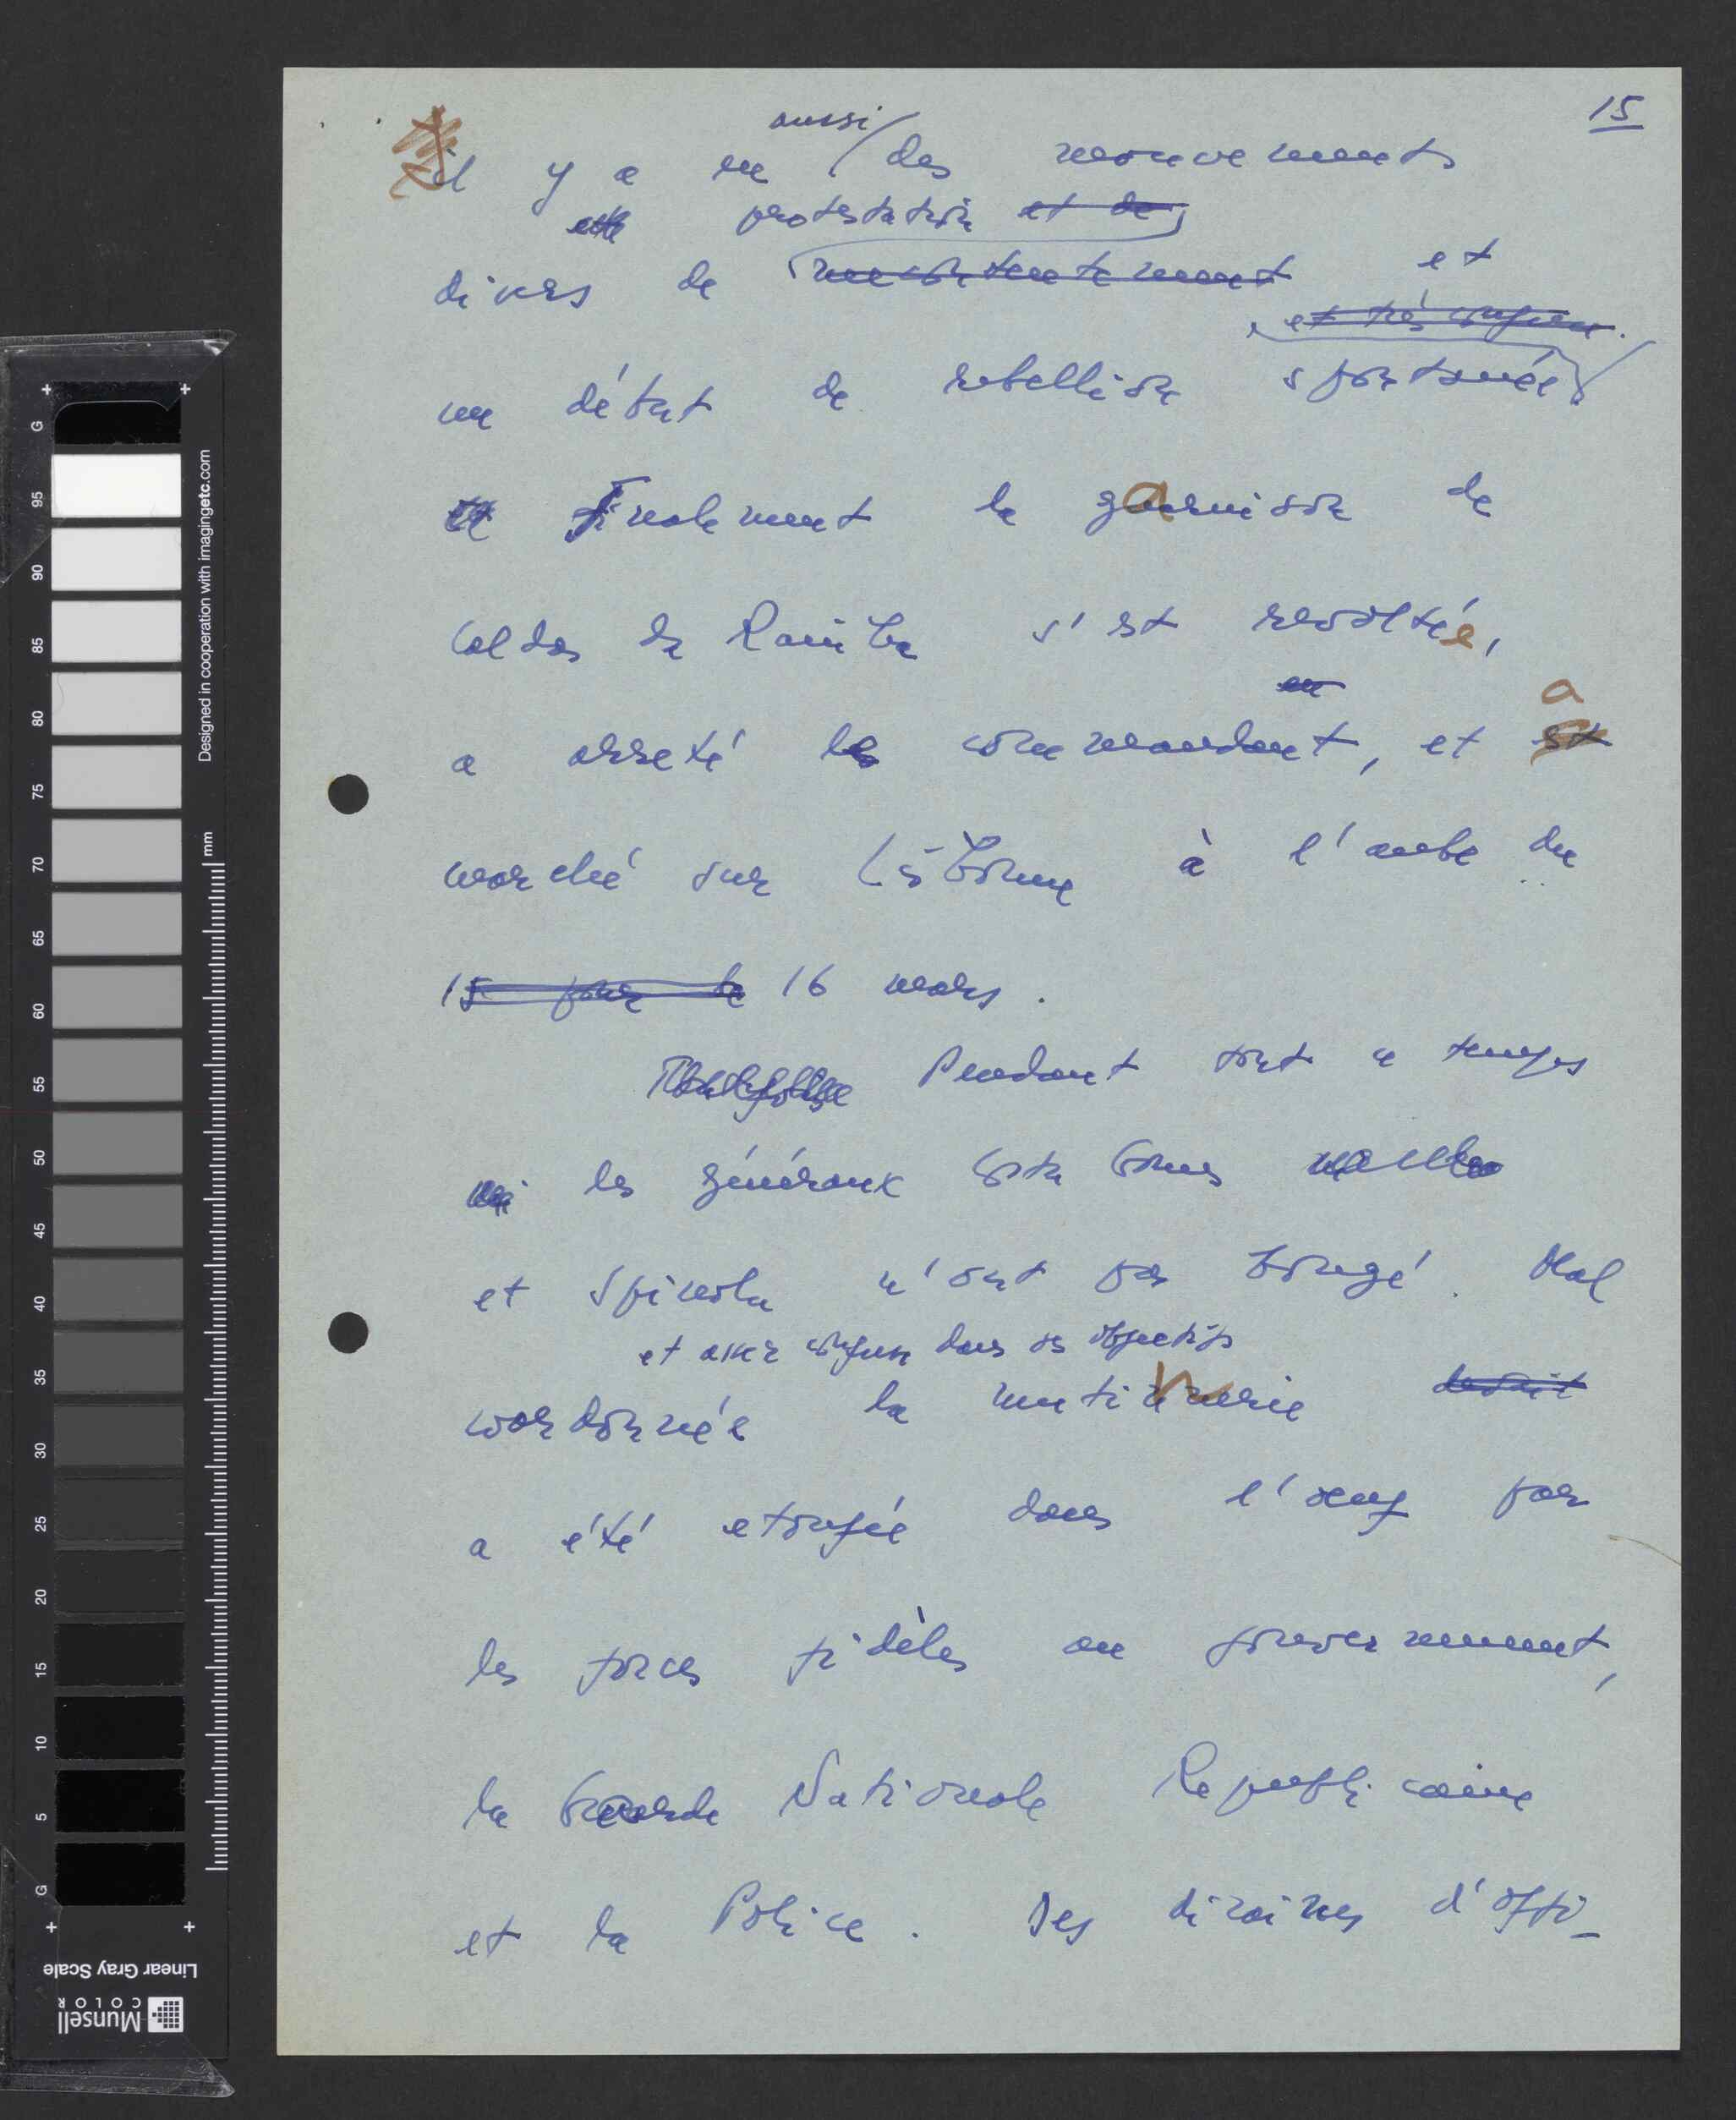 15
aussi
il y a eu des mouvements
protestation et de
divers de mecontentement et
et très confuse.
un début de rebellion spontanée
Finalement la garnison de
Caldas da Rainha s'est revoltée,
en a
a arreté le commandant, et est
marché sur Lisbonne à l'aube du
15 pour le 16 mars.
Pendant tout ce temps
les généraux Costa Gomes
et Spinola n'ont pas bougé. Mal
et assez confuse dans ses objectifs
coordonnée la mutinerie devait
a été etouffée dans l'oeuf par
les forces fidèles au gouvernement,
la Garde Nationale Republicaine
et la Police. Des dizaines d'offi-
Designed in cooperation with imagingetc.com
mm
G 95 90 85 80 75 70 65 60 55 50 45 40 35 30 25 20 15 10 5 G
Linear Gray Scale
Munsell
COLOR